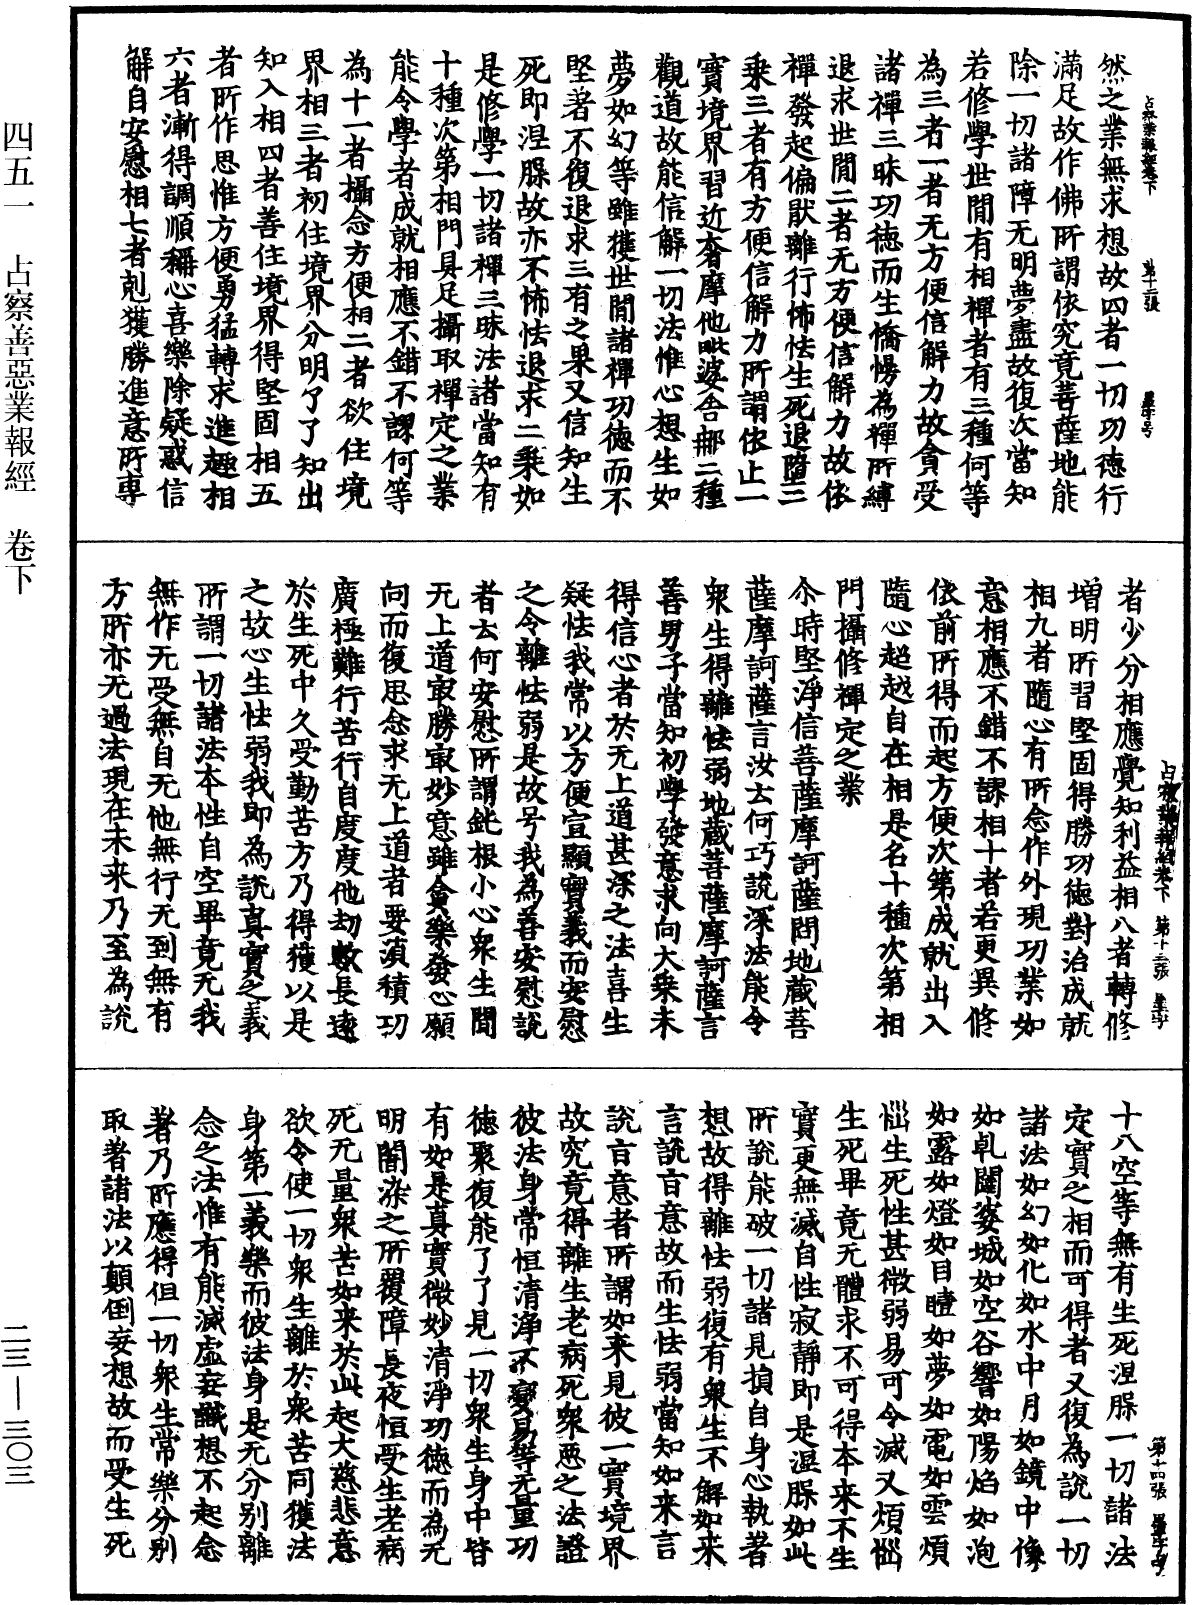 四五一　占察善惡業報經　卷下
二三—三〇三
然之業無求想故四者一切功德行
滿足故作佛所謂依究竟菩薩地能
除一切諸障无明夢盡故復次當知
若修學世閒有相禪者有三種何等
為三者一者无方便信解力故貪受
諸禪三昧功德而生憍慢為禪所縛
退求世閒二者无方便信解力故依
禪發起偏猒離行怖怯生死退墮二
乘三者有方便信解力所謂依止一
實境界習近奢摩他毗婆舍那二種
觀道故能信解一切法惟心想生如
夢如幻等雖獲世閒諸禪功德而不
堅著不復退求三有之果又信知生
死即涅槃故亦不怖怯退求二乘如
是修學一切諸禪三昧法諸當知有
十種次第相門具足攝取禪定之業
能令學者成就相應不錯不謬何等
為十一者攝念方便相二者欲住境
界相三者初住境界分明了了知出
知入相四者善住境界得堅固相五
者所作思惟方便勇猛轉求進趣相
六者漸得調順稱心喜樂除疑惑信
解自安慰相七者剋獲勝進意所專
占察業報經卷下　第十三張
者少分相應覺知利益相八者轉修
增明所習堅固得勝功德對治成就
相九者隨心有所念作外現功業如
意相應不錯不謬相十者若更異修
依前所得而起方便次第成就出入
隨心超越自在相是名十種次第相
門攝修禪定之業
尒時堅淨信菩薩摩訶薩問地藏菩
薩摩訶薩言汝云何巧說深法能令
眾生得離怯弱地藏菩薩摩訶薩言
善男子當知初學發意求向大乘未
得信心者於无上道甚深之法喜生
疑怯我常以方便宣顯實義而安慰
之令離怯弱是故号我為善安慰說
者云何安慰所謂鈍根小心眾生聞
无上道寂勝寂妙意雖貪樂發心願
向而復思念求无上道者要湏積功
廣極難行苦行自度度他劫數長遠
於生死中久受勤苦方乃得獲以是
之故心生怯弱我即為說真實之義
所謂一切諸法本性自空畢竟无我
無作无受無自无他無行无到無有
方所亦无過去現在未来乃至為說
第十四張
十八空等無有生死涅槃一切諸法
定實之相而可得者又復為說一切
諸法如幻如化如水中月如鏡中像
如乹闥婆城如空谷響如陽焰如泡
如露如燈如目瞖如夢如電如雲煩
惱生死性甚微弱易可令滅又煩惱
生死畢竟无體求不可得本来不生
實更無滅自性寂靜即是涅槃如此
所說能破一切諸見損自身心執著
想故得離怯弱復有眾生不解如来
言說旨意故而生怯弱當知如来言
說旨意者所謂如来見彼一實境界
故究竟得離生老病死眾惡之法證
彼法身常恒清淨不變易等无量功
德聚復能了了見一切眾生身中皆
有如是真實微妙清淨功德而為无
明闇染之所覆障長夜恒受生老病
死无量眾苦如来於此起大慈悲意
欲令使一切眾生離於眾苦同獲法
身第一義樂而彼法身是无分别離
念之法惟有能滅虛妄識想不起念
者乃所應得但一切眾生常樂分別
取著諸法以顛倒妄想故而受生死